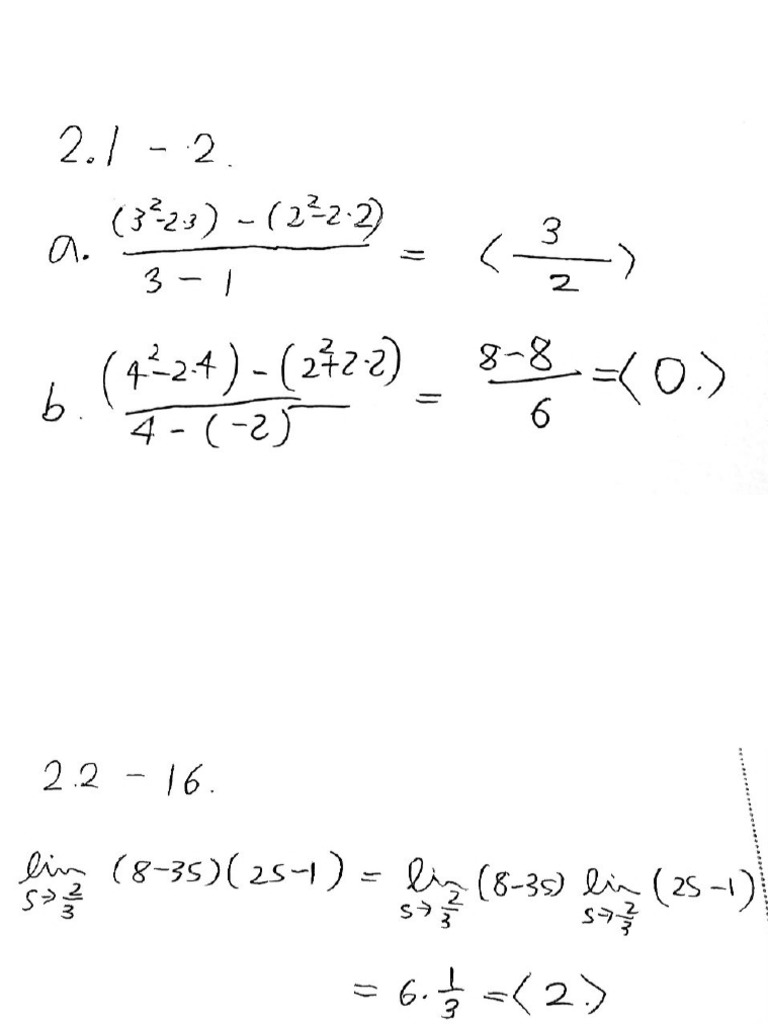 2.1 - 2.
a. ((3²-2·3) - (2²-2·2))/(3 - 1) = < 3/2 >
b. ((4²-2·4) - (2²+2·2))/(4 - (-2)) = (8-8)/6 = < 0. >
2.2 - 16.
lim s→2/3 (8-3s)(2s-1) = lim s→2/3 (8-3s) lim s→2/3 (2s-1)
= 6·1/3 = < 2. >